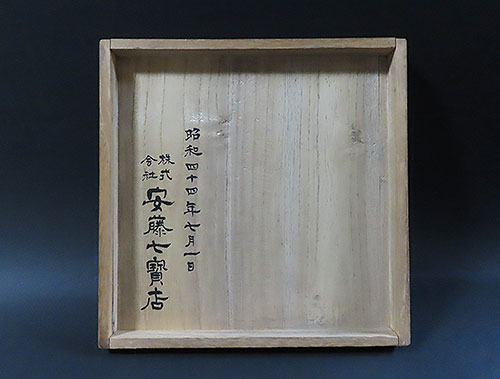 昭和四十四年七月一日
株式会社 安藤七寳店